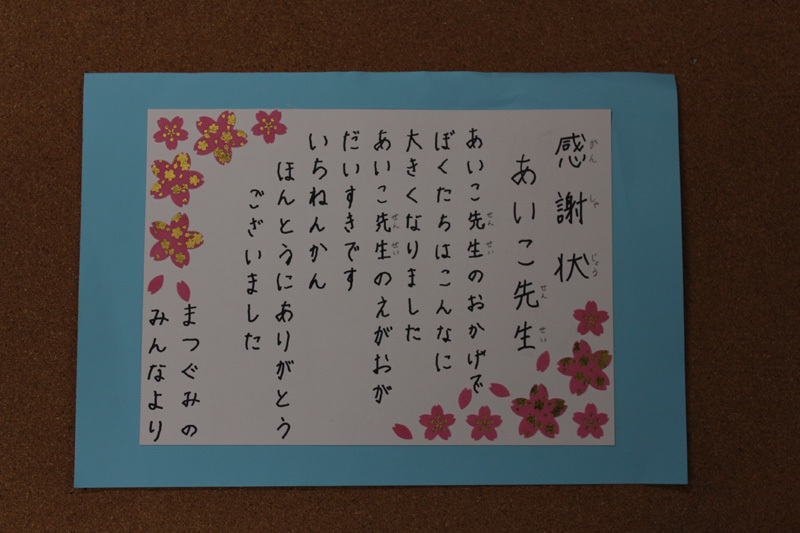 感謝状
あいこ先生
あいこ先生のおかげで
ぼくたちはこんなに
大きくなりました
あいこ先生のえがおが
だいすきです
いちねんかん
ほんとうにありがとう
ございました
まつぐみの
みんなより